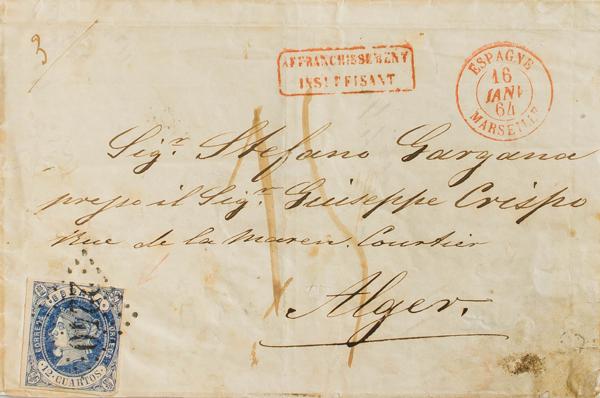 3
AFFRANCHISSEMENT
INSUFFISANT
ESPAGNE
16
JANV
64
MARSEILLE
15
Sigr. Stefano Gargana
presso il Sigr. Giuseppe Crispo
Rue de la Maren. Courtier
Alger.
CORREOS
12 CUARTOS